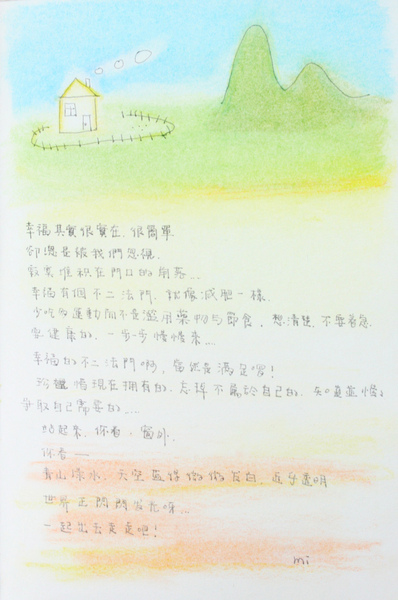 幸福其實很實在、很簡單
卻總是被我們忽視
寂寞堆積在門口的角落...
幸福有個不二法門，就像減肥一樣
少吃多運動而不是濫用藥物与節食，想清楚，不要着急
要健康的，一步步慢慢來...
幸福的不二法門啊，當然是滿足囉！
珍惜現在擁有的，忘掉不屬於自己的，
爭取自己需要的....
站起來，你看，窗外
你看——
青山綠水，天空藍得微微泛白，近乎透明
世界正閃閃發光呀...
一起出去走走吧！
mi